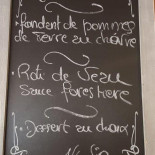 Fondant de pommes
de Terre au chèvre
Roti de Veau
Sauce Forestière
Dessert au choix